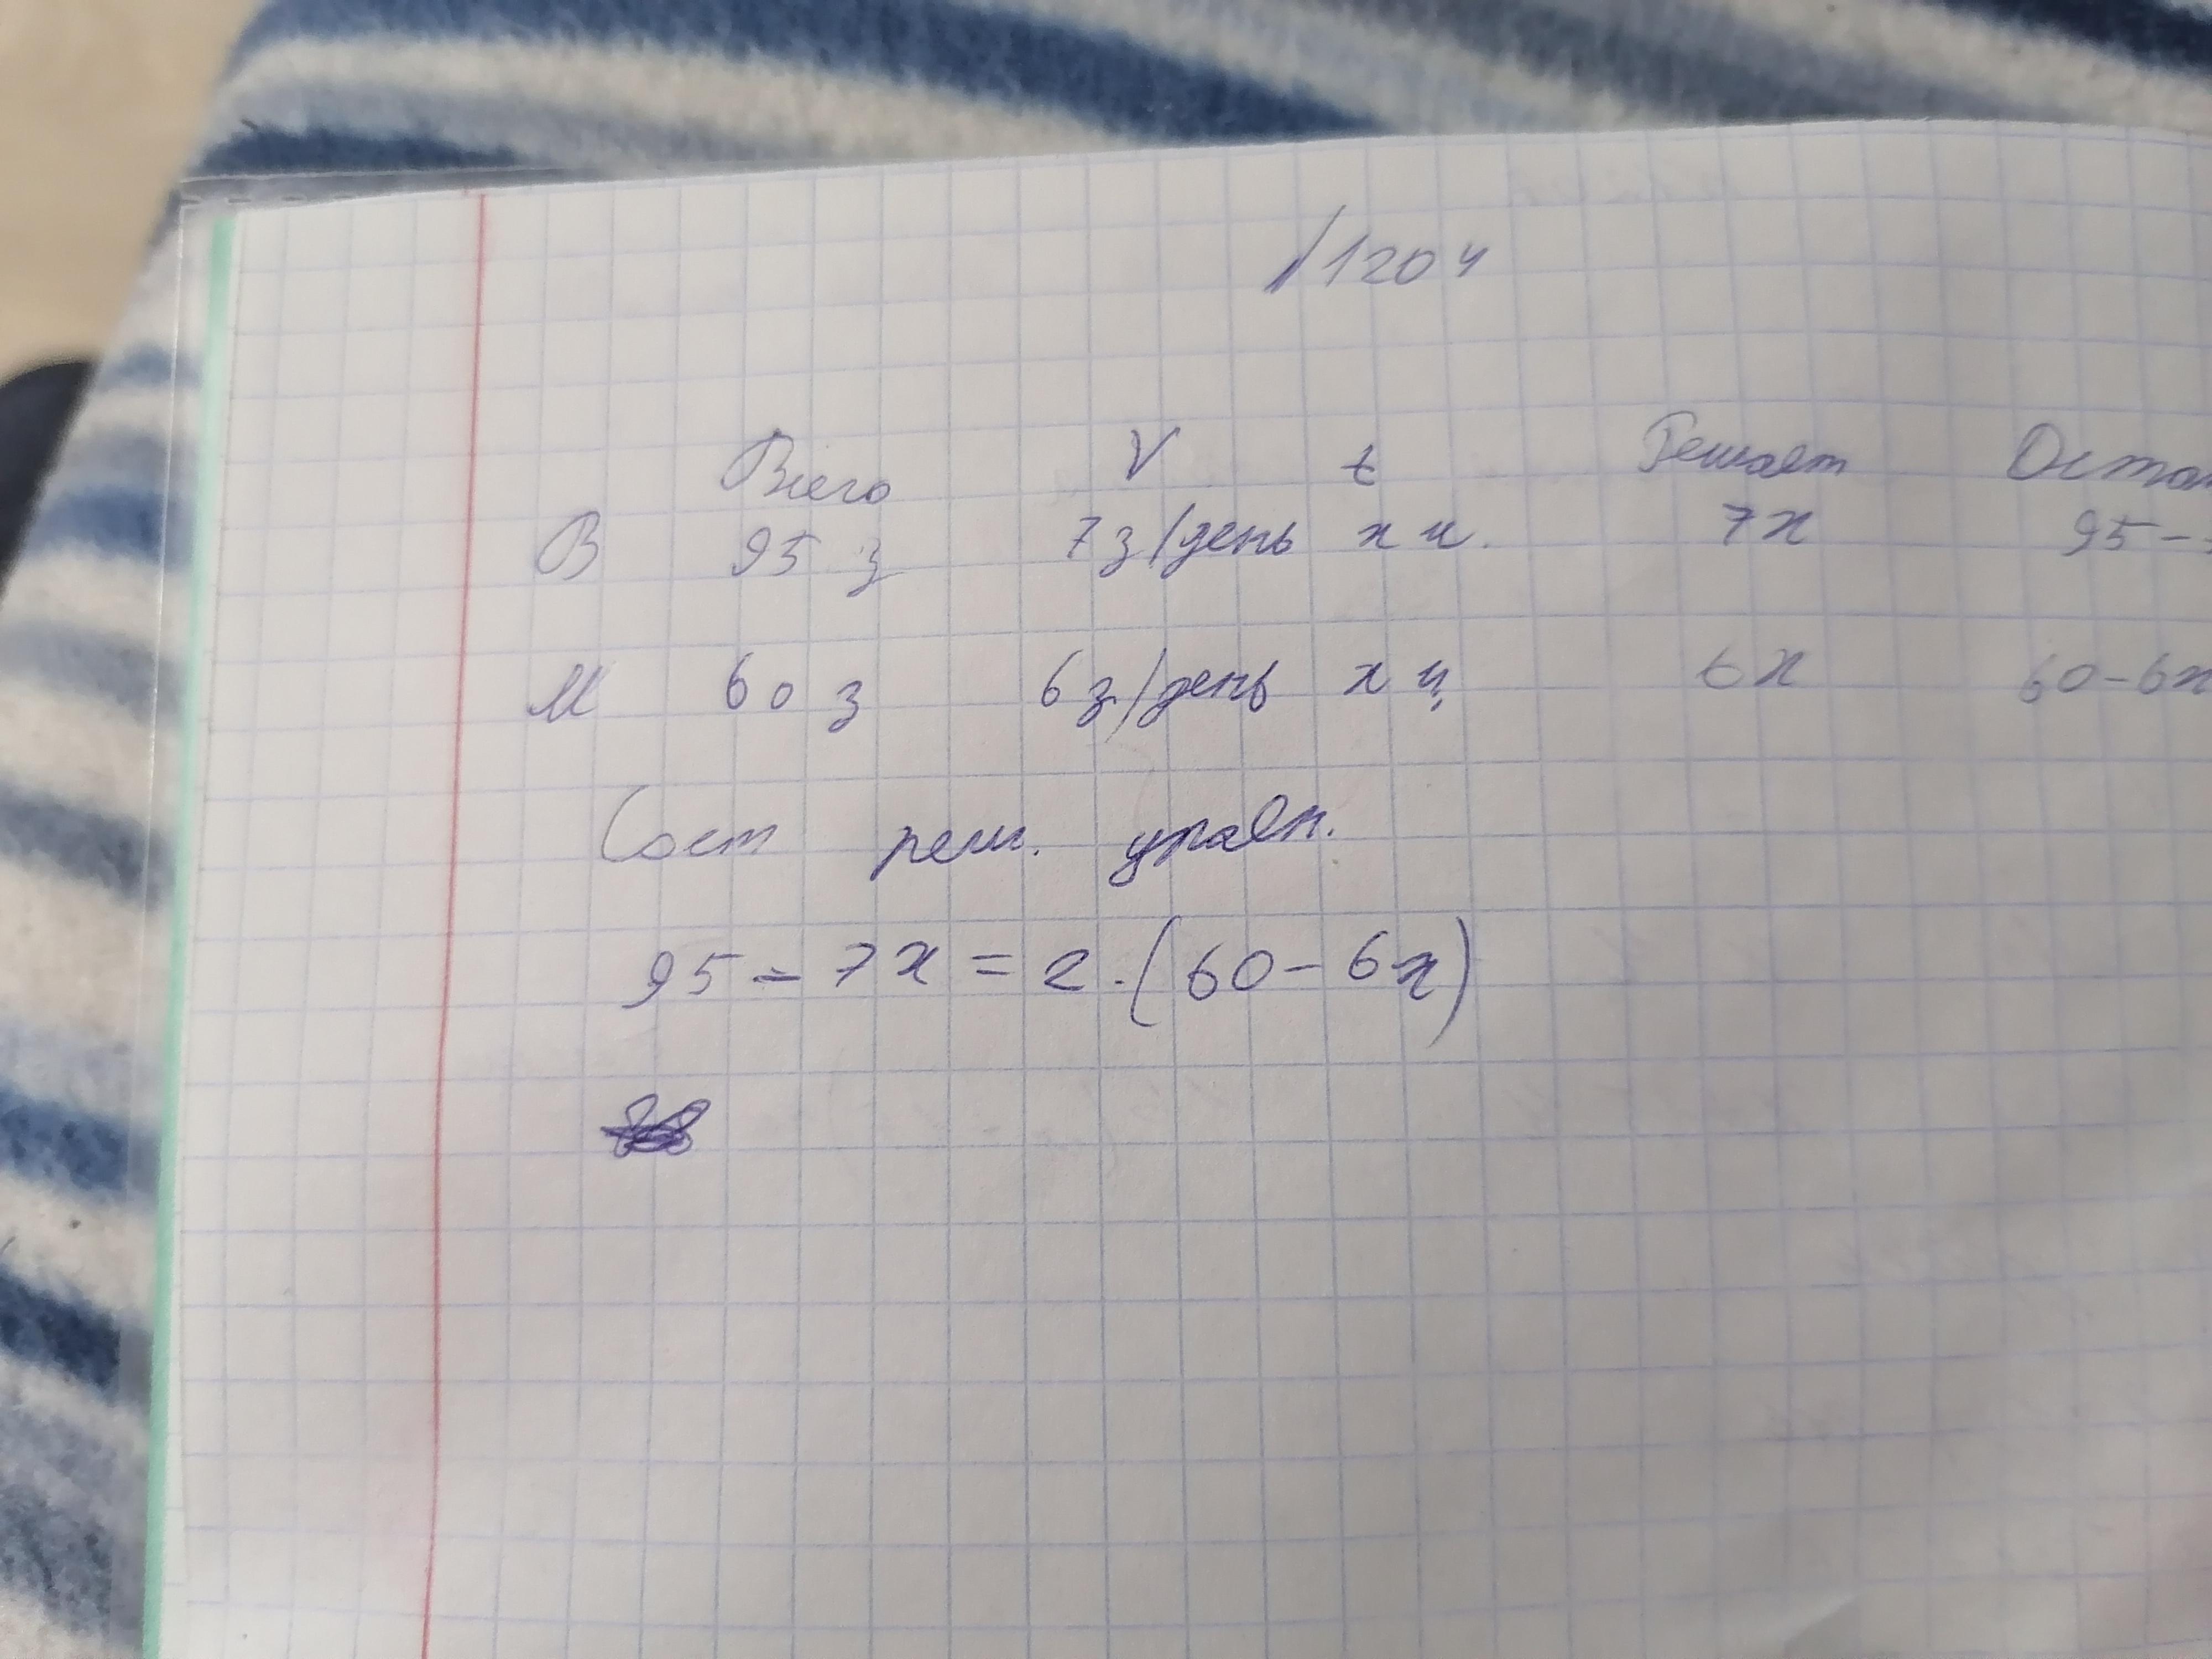 /1204
Всего V t Решает Остал
В 95 з 7 з/день х ч. 7х 95-
М 60 з 6 з/день х ч. 6х 60-6х
Сост реш. уравн.
95-7х=2·(60-6х)